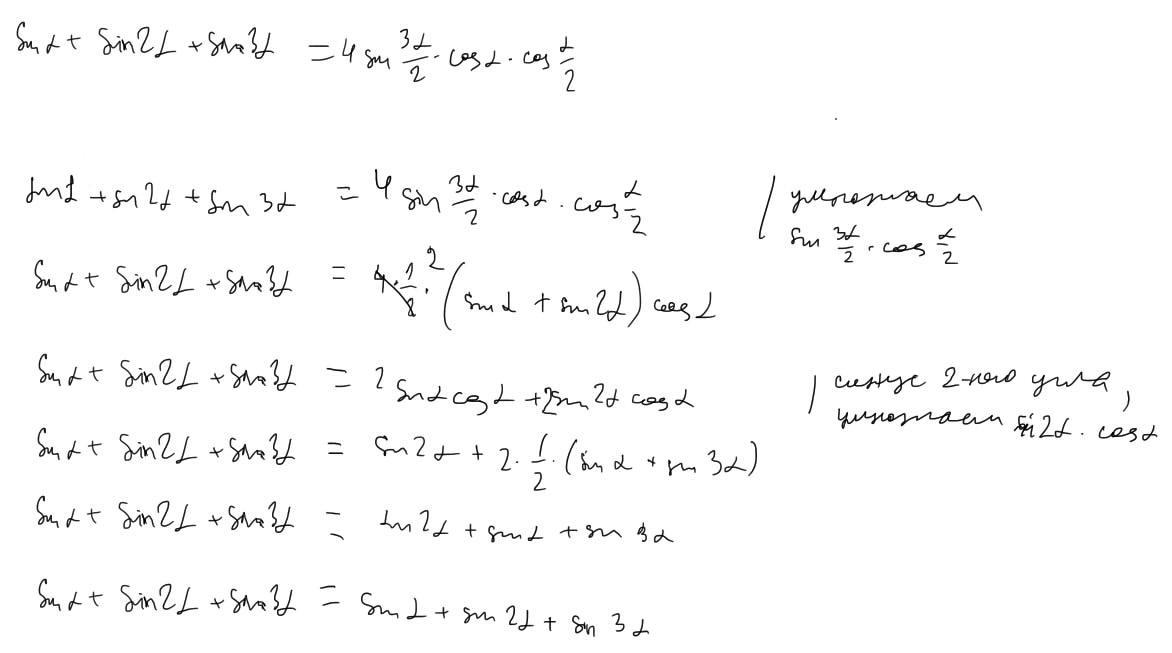 sin α + sin 2α + sin 3α = 4 sin 3α/2 · cos α · cos α/2
sin α + sin 2α + sin 3α = 4 sin 3α/2 · cos α · cos α/2 | умножаем
sin 3α/2 · cos α/2
sin α + sin 2α + sin 3α = 4 · 1/2 · 2 (sin α + sin 2α) cos α
sin α + sin 2α + sin 3α = 2 sin α cos α + 2 sin 2α cos α | синус 2-ного угла,
умножаем sin 2α · cos α
sin α + sin 2α + sin 3α = sin 2α + 2 · 1/2 · (sin α + sin 3α)
sin α + sin 2α + sin 3α = sin 2α + sin α + sin 3α
sin α + sin 2α + sin 3α = sin α + sin 2α + sin 3α